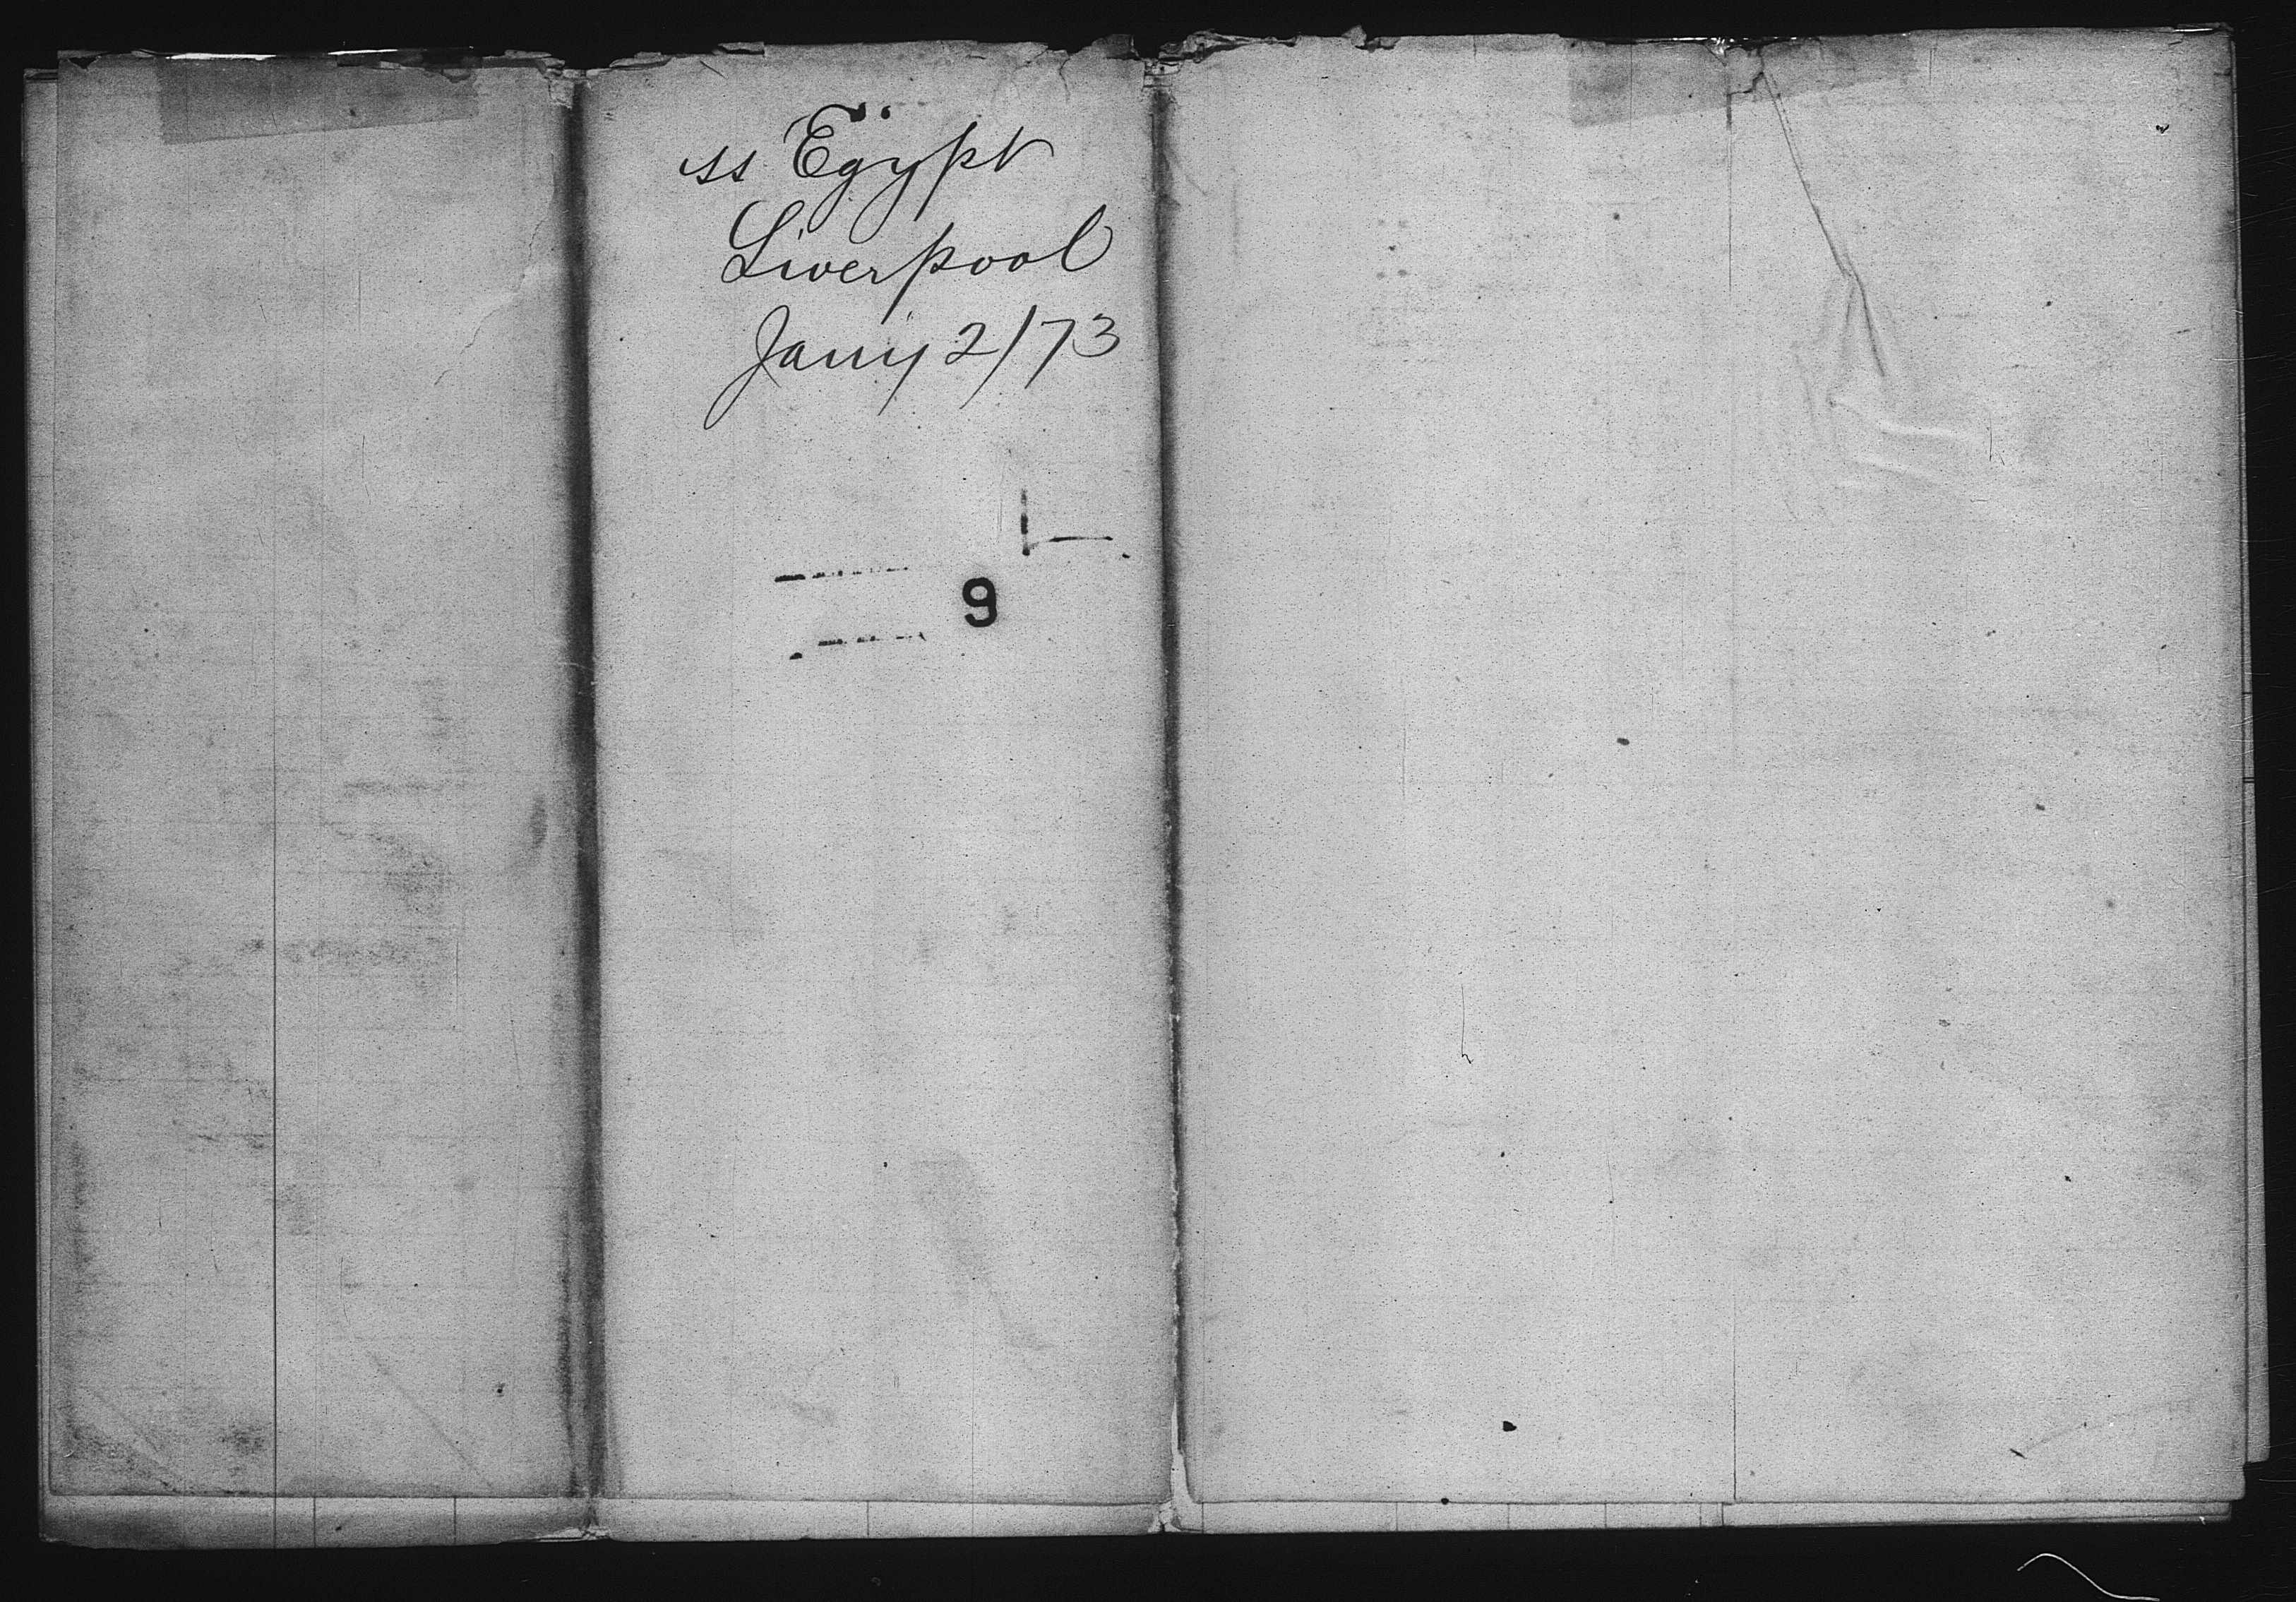 ss Egypt
Liverpool
Jany 2/73
9